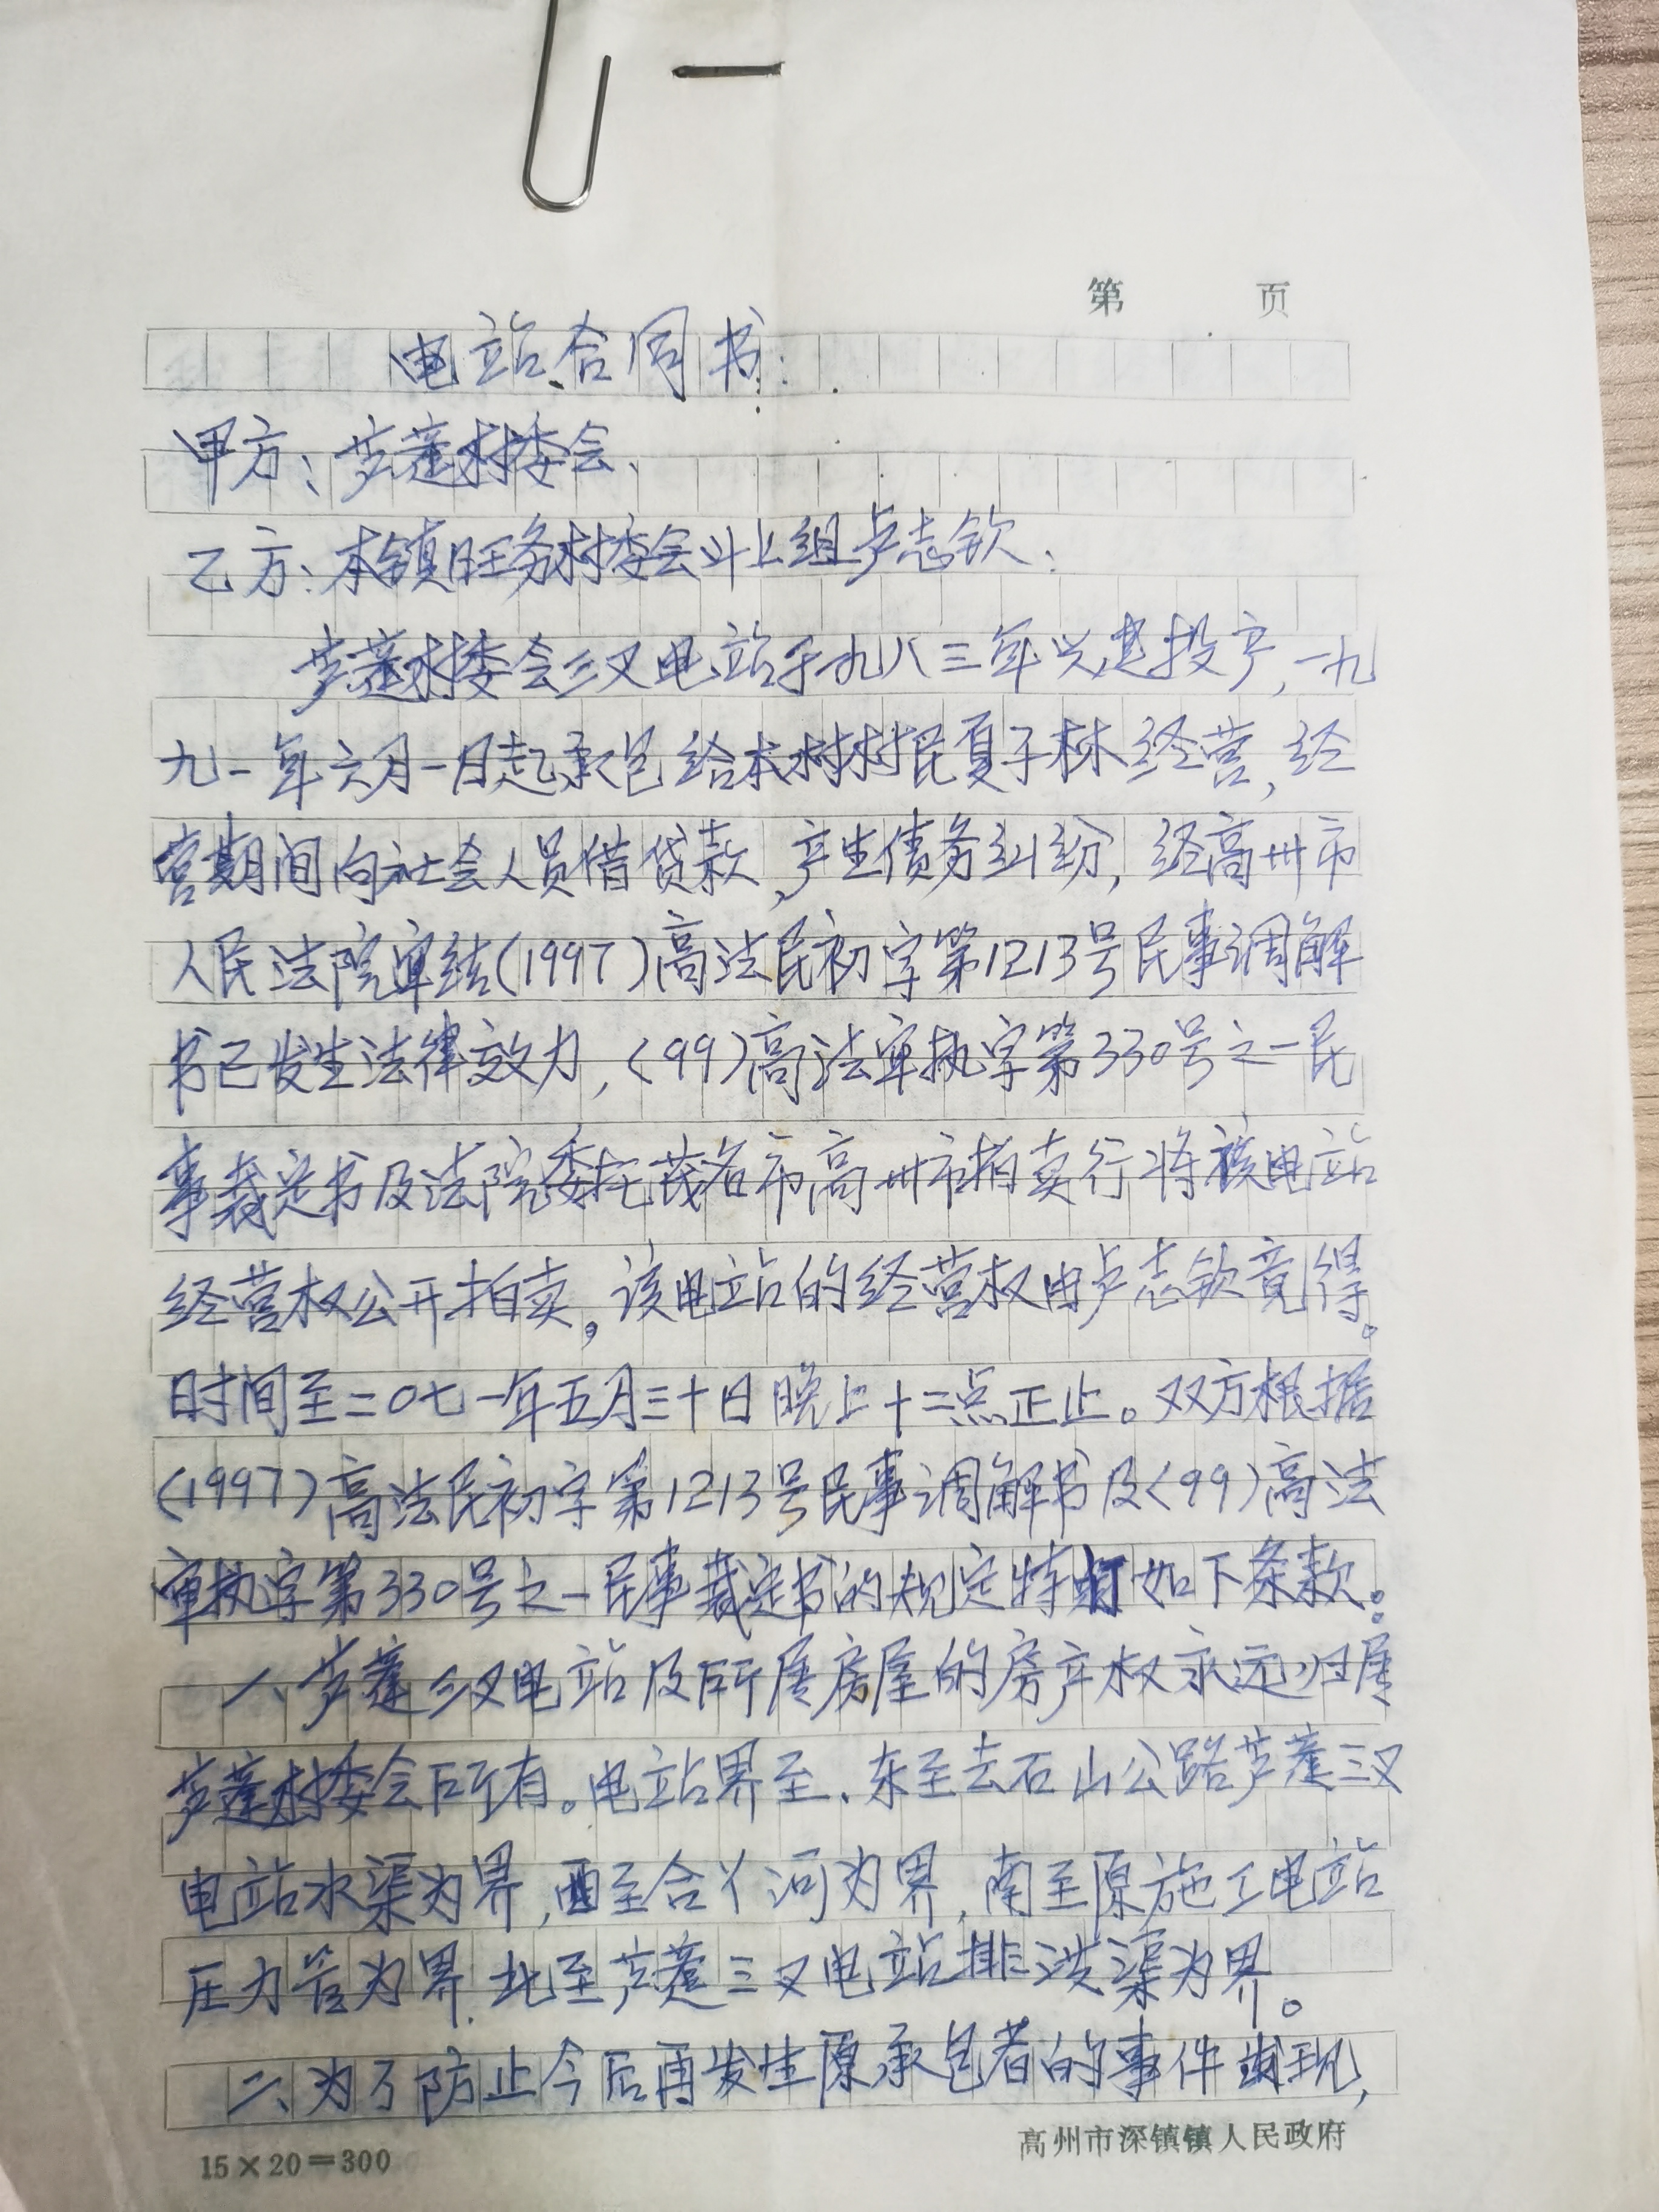 第 页
电站合同书:
甲方:芦蓬村委会、
乙方:本镇旺务村委会斗上组卢志钦.
芦蓬村委会三叉电站于九八三年兴建投产,一九
九一年六月一日起承包给本村村民夏子林经营,经
营期间向社会人员借贷款,产生债务纠纷,经高州市
人民法院审结(1997)高法民初字第1213号民事调解
书已发生法律效力,(99)高法审执字第330号之一民
事裁定书及法院委托茂名市高州市拍卖行将该电站
经营权公开拍卖。该电站的经营权由卢志钦竟得。
日时间至二〇七一年五月三十日晚上十二点正止。双方根据
(1997)高法民初字第1213号民事调解书及(99)高法
审执字第330号之一民事裁定书的规定特订如下条款。:
一、芦蓬三叉电站及所属房屋的房产权永远归属
芦蓬村委会所有。电站界至.东至去石山公路芦蓬三叉
电站水渠为界,西至合丫河为界,南至原施工电站
压力管为界.北至芦蓬三叉电站排洪渠为界。
二、为了防止今后再发生原承包者的事件出现,
15×20=300
高州市深镇镇人民政府